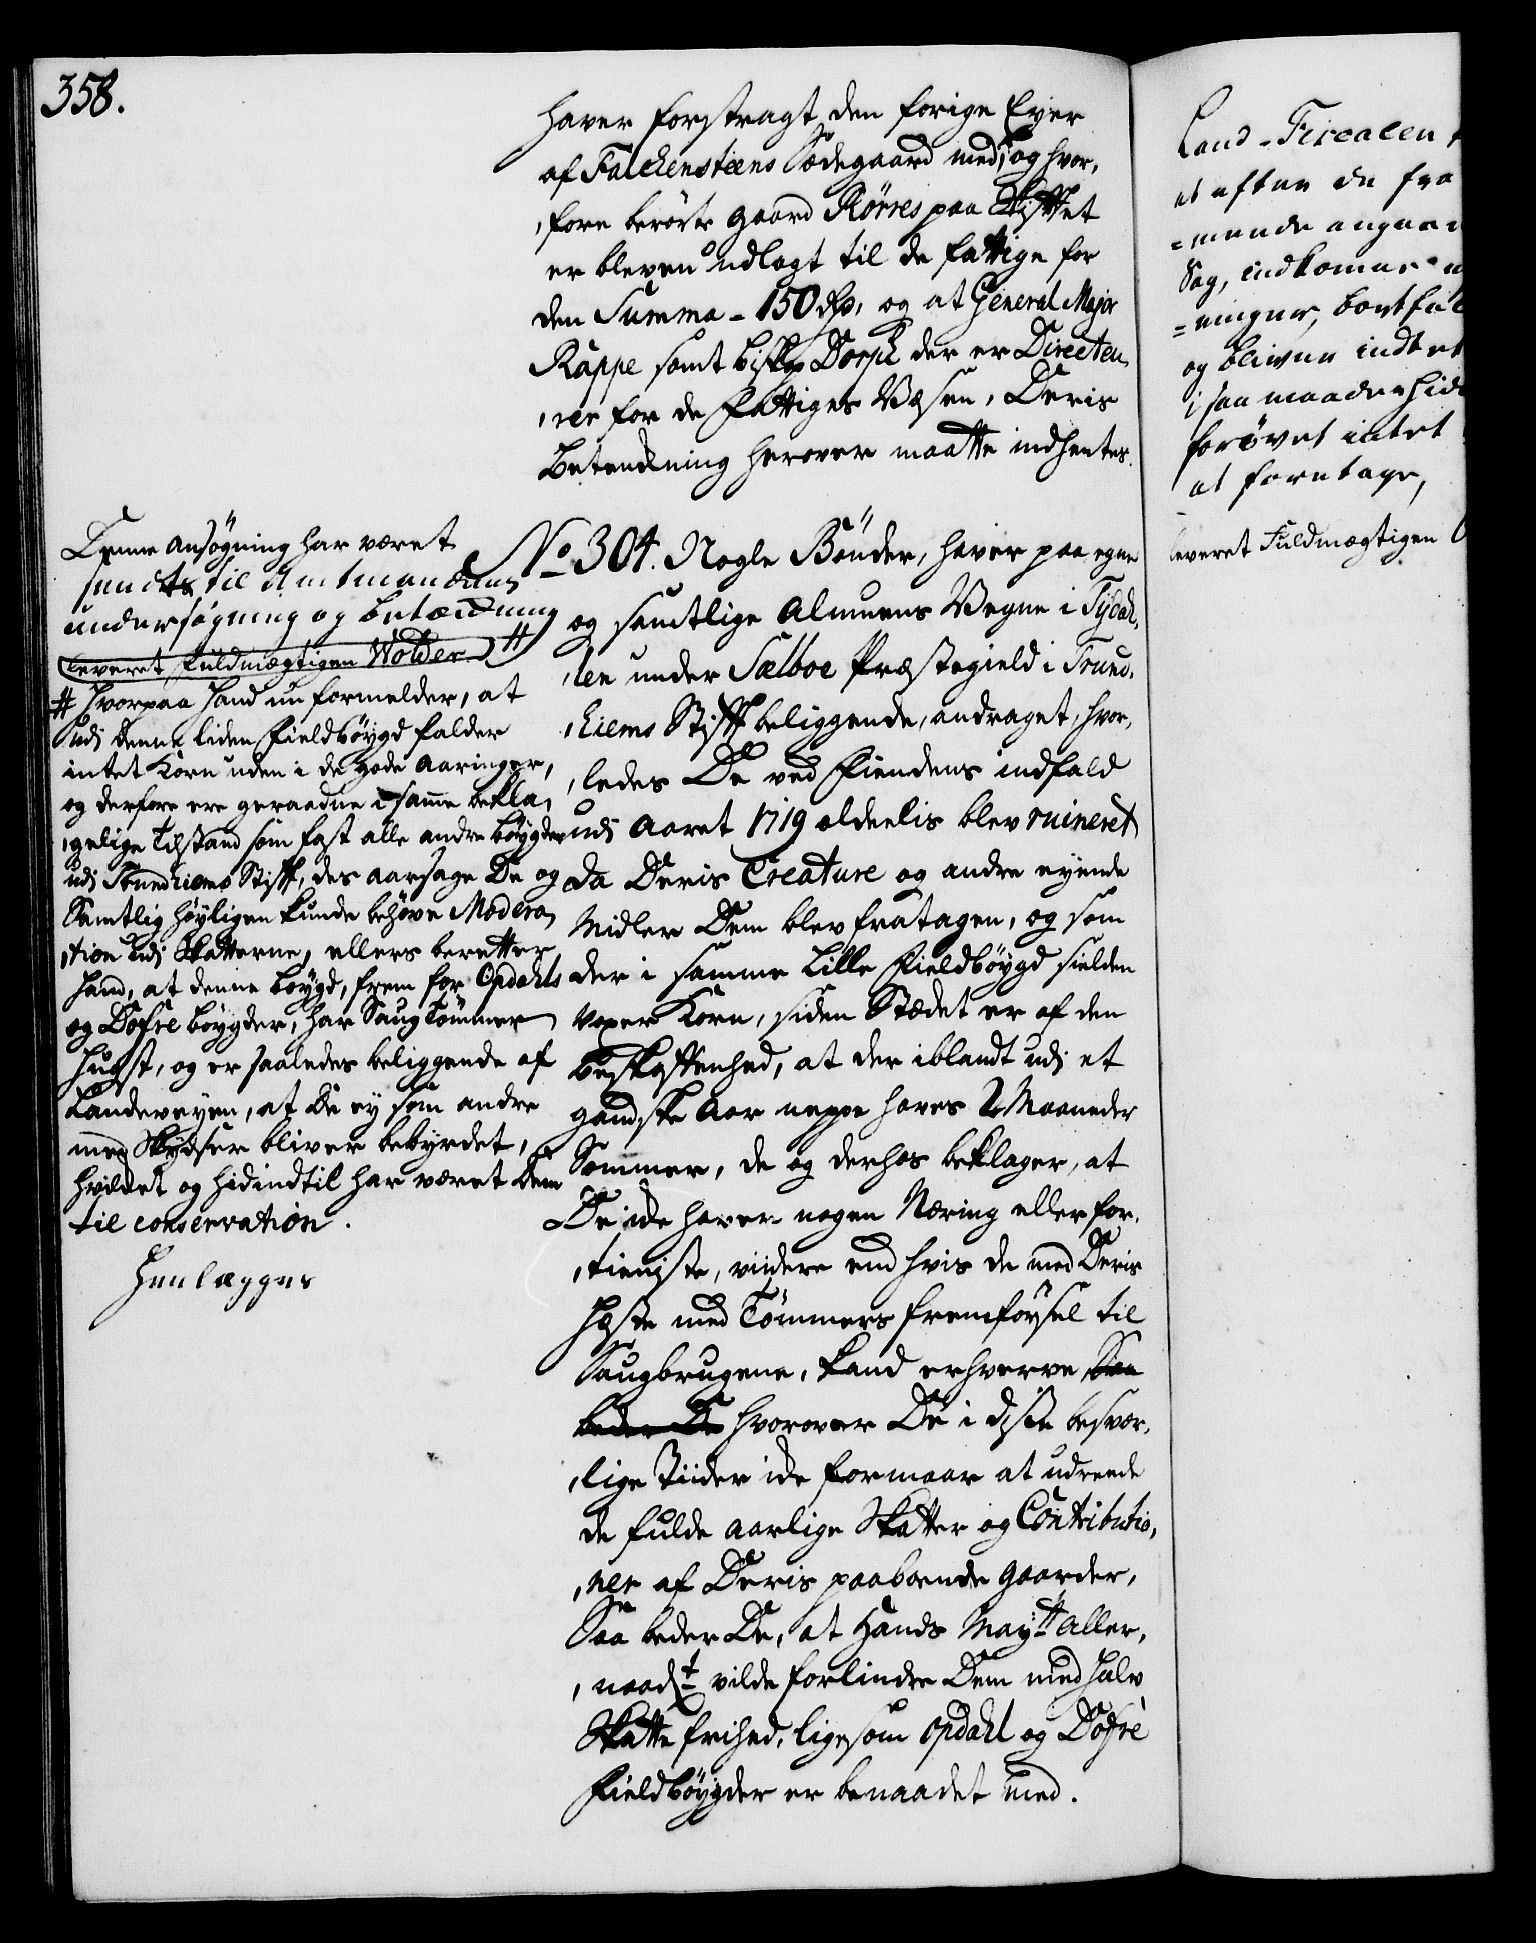 358.
haver forstragt den forige Eyer
af Falckensteens Sædegaard med; og hvor,
,fore berørte gaard Rørres paa Skifftet
er bleven udlagt til de fattige for
den Summa - 150 rdr, og at General Major
Rappe samt biskop Dorph der er Directeu,
,rer for de Fattiges Væsen, Deris
betenckning herover maatte indhentes.
Denne ansøgning har været
sendt til Amtmandens
undersøgning og betænckning
leveret fuldmægtigen Wolder #
# hvorpaa hand nu formelder, at
udj denne liden Fieldbøygd falder
intet Korn uden i de gode Aaringer,
og derfore ere geraadne i samme bekla,
,gelige Tilstand som fast alle andre bøygder
udj Trundhiems Stifft, des aarsage De og
Samtlig høyligen kunde behøve Modera,
,tion udj Skatterne, ellers beretter
hand, at denne bøygd, frem for Opdahls
og Dofre bøygder, har SaugTømmer
hugst, og er saaledes beliggende af
Landeveyen, at de ey som andre
med Skydser bliver bebyrdet,
hvilcket og hidindtil har været dem
til conservation.
Henlægges
No 304. Nogle Bønder, haver paa egne
og samtlige Almuens Vegne i Tydah,
,len under Sælboe Præstegield i Trund,
,hiems Stifft beliggende, andraget, hvor,
,ledes De ved Fiendens indfald
udj Aaret 1719 aldeelis blev ruineret
da Deris Creature og andre eyende
Midler Dem blev fratagen, og som
der i samme Lille Fieldbøygd sielden
voxer Korn, siden Stædet er af den
beskaffenhed, at der iblandt udj et
gandske Aar neppe haves 2 Maaneder
Sommer, de og derhos beklager, at
De icke haver nogen Næring eller for,
,tieniste, viidere end hvis de med Deris
Hæste med Tømmers fremføysel til
Saugbrugene, kand erhverve, Saa
beder De hvorover De i disse besvær,
,lige Tiider icke formaar at udreede
de fulde aarlige Skatter og Contributio,
,ner af Deris paaboende gaarder,
Saa beder De, at Hands Maytt aller,
,naadt vilde forlindre Dem med halv
Skatte frihed, ligesom Opdahl og Dofre
Fieldbøygder er benaadet med.
Land-Fiscalen
at efter de fra
=mende angaa
Sag, indkomne
=ninger, bortfal
og bliver indtet
i saa maade hid
forøvet intet
at foretage,
leveret Fuldmægtigen